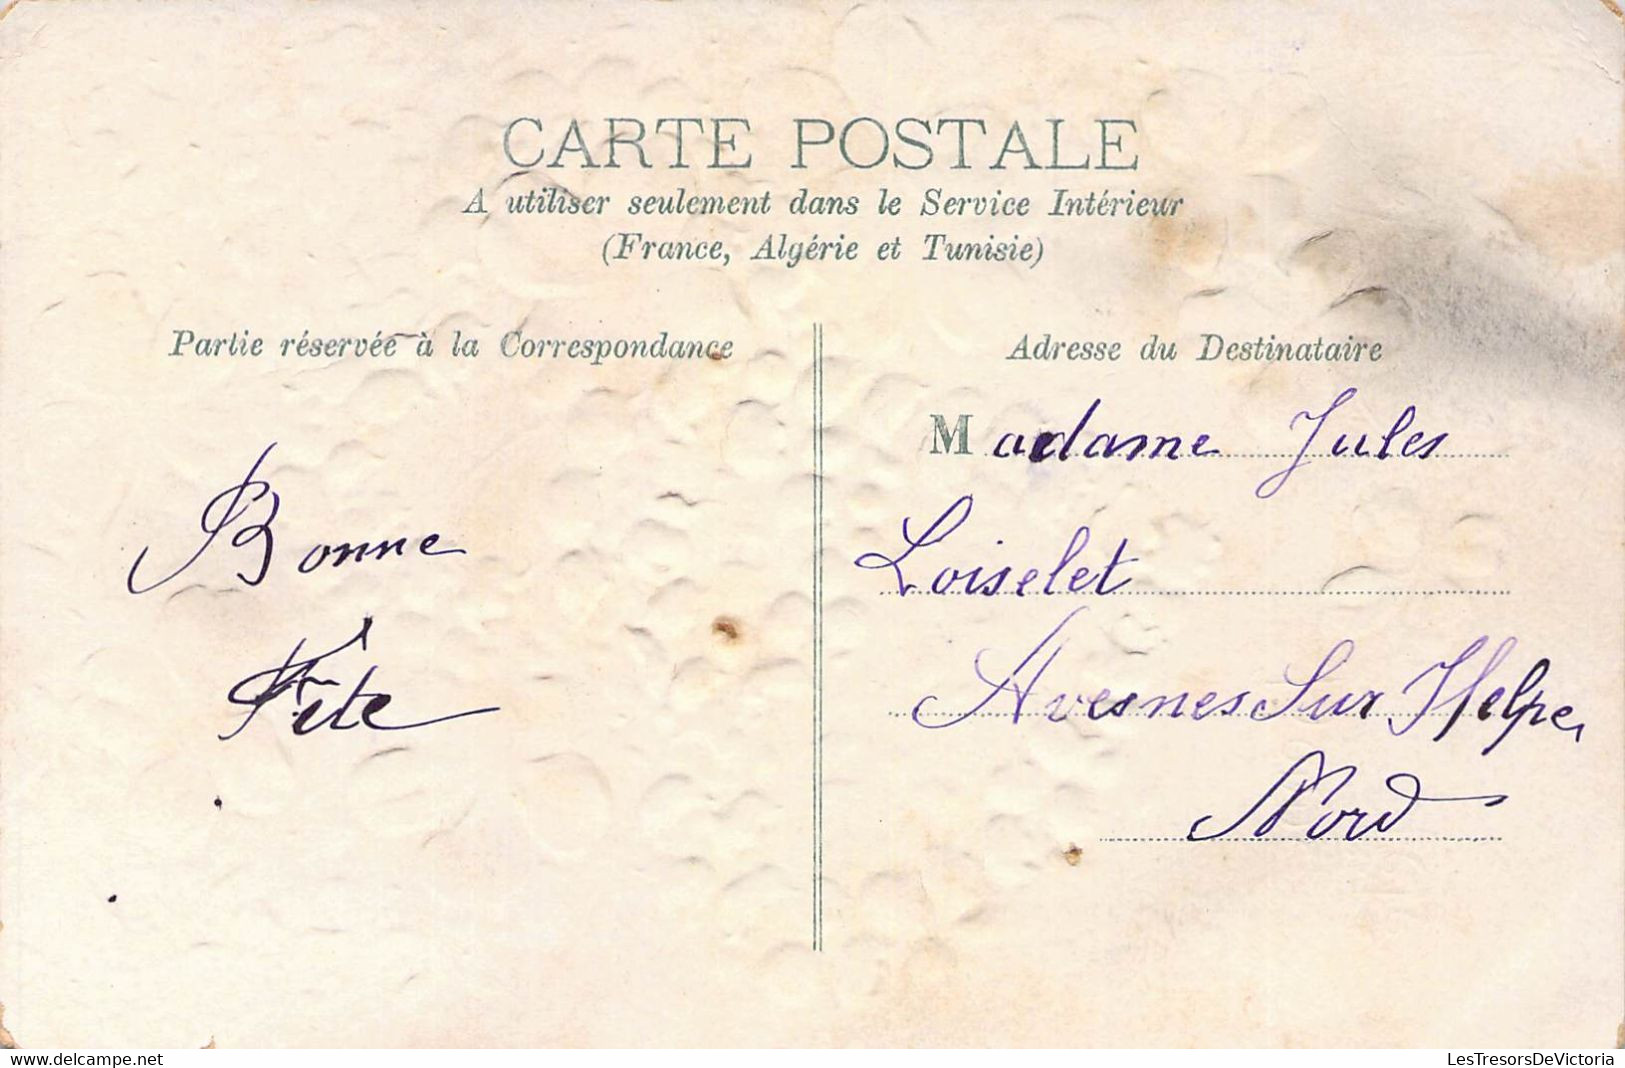 CARTE POSTALE
A utiliser seulement dans le Service Intérieur
(France, Algérie et Tunisie)
Partie réservée à la Correspondance
Bonne
Fête
Adresse du Destinataire
Madame Jules
Loiselet
Avesnes Sur Helpe,
Nord
www.delcampe.net
LesTresorsDeVictoria